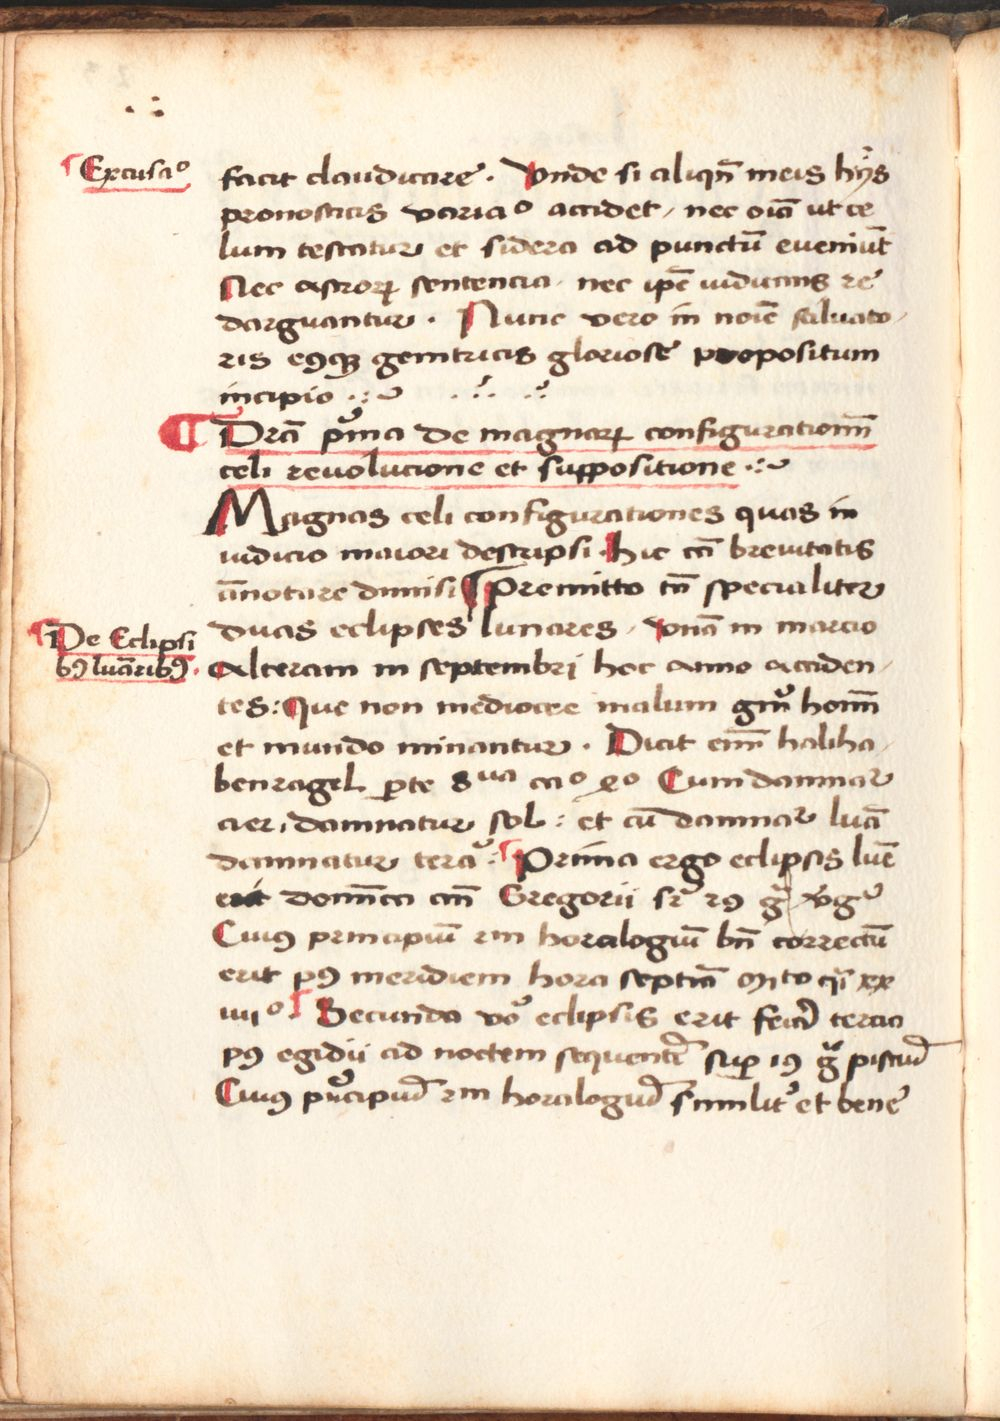 Excusaº
facit claudicare. Vnde si aliqñ meis hijs
pronosticis variaº accidet, nec oīa ut ce
lum testatur et sidera ad punctū eveniūt
Nec astrorꝝ sentencia, nec ip̄e iudicans re
darguantur. Nunc vero in noīe saluato,
ris eiꝰqꝫ genitricis gloriose propositum
incipio
Dr̄a p̃ma de magnarꝝ configurationū
celi reuolucione et suppositione
Magnas celi configurationes quas in
iudicio maiori descripsi. hic cā breuitatis
ānotare dimisi Premitto tn̄ specialiter
De Eclipsi
bꝰ lūaribꝰ.
duas eclipses lunares, vnā in marcio
Alteram in septembri hoc anno acciden,
tes: Que non mediocre malum gn̄i hom̄
et mundo minantur. Dicit em̄ haliha,
benragel parte 8ᵘᵃ caº Cum damnar
aer, damnatur sol: et cū damnar lūa
damnatur terā: Prima ergo eclipsis lūe
erit domīca añ Gregorii
Cuiꝰ principiū horalogiū bn̄ correctū
erit pꝰ meridiem hora septīa xx
iiiiº. Secunda vo eclipsis erit feria tercia
pꝰ egidii ad noctem sequentē suꝑ 19 piscium
Cuiꝰ p̃ncipiū horalogiū similit̓ et bene